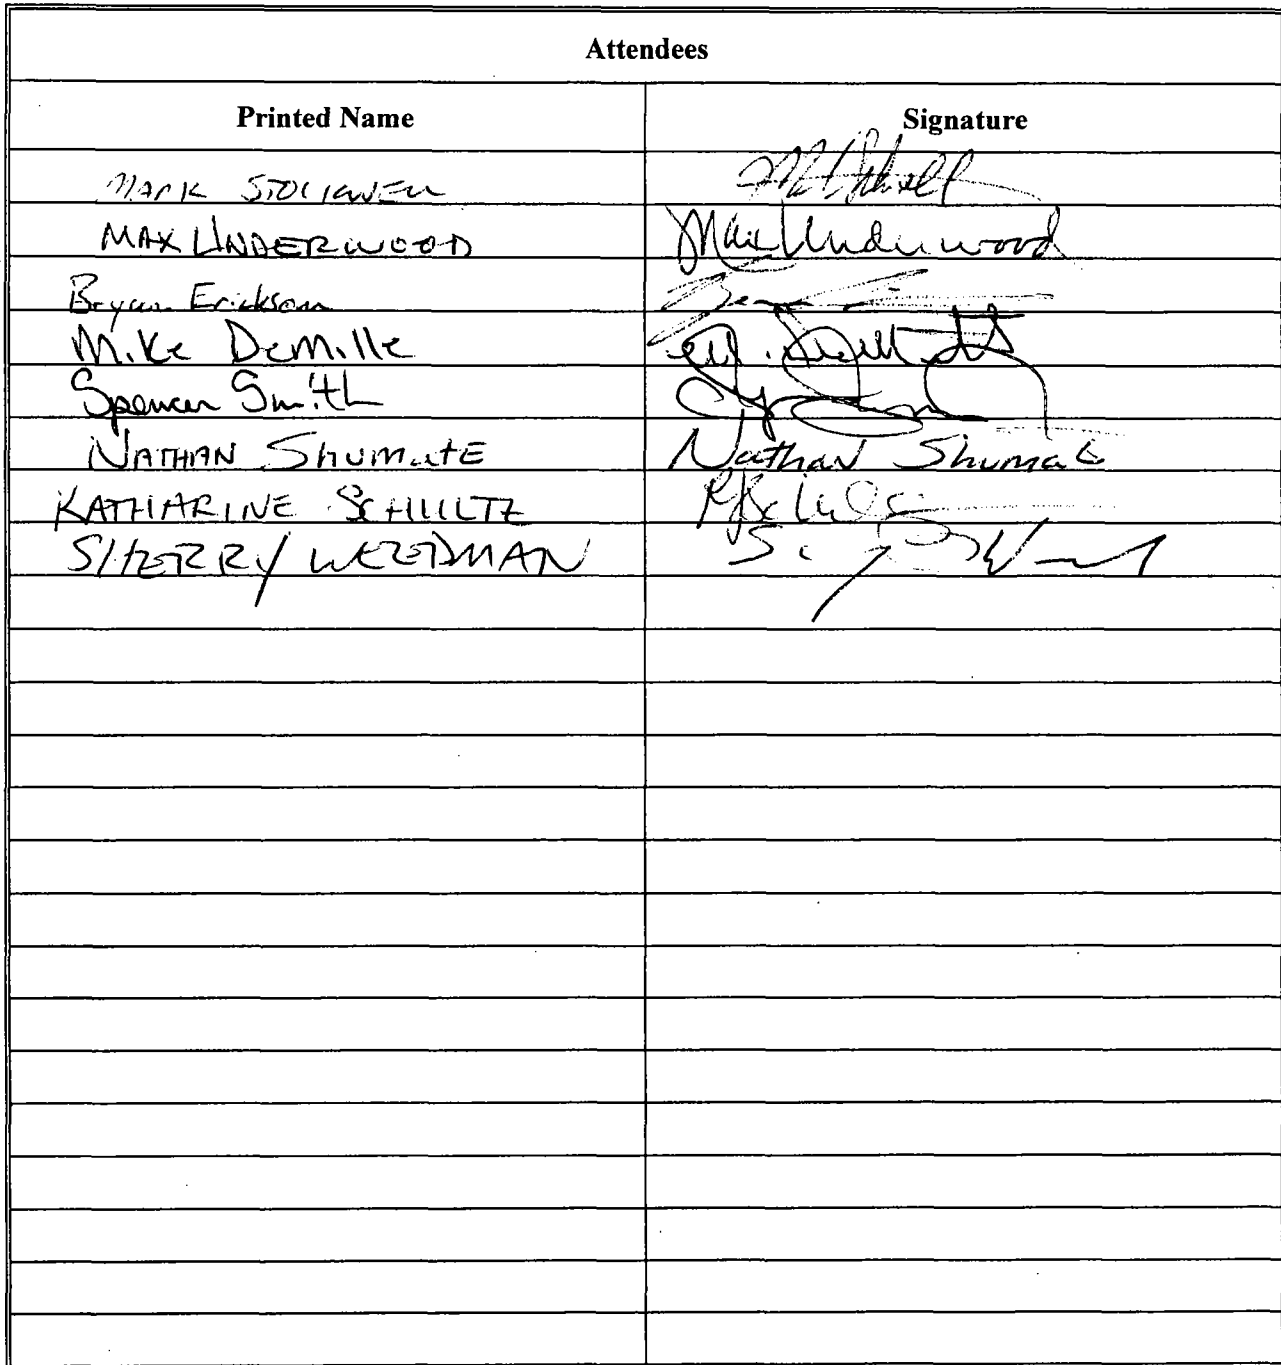 Attendees
Printed Name Signature
MARK STOCKWELL
MAX UNDERWOOD Max Underwood
Bryan Erickson
Mike DeMille
Spencer Smith
NATHAN Shumate Nathan Shumate
KATHARINE SCHULTZ
SHERRY WEEDMAN